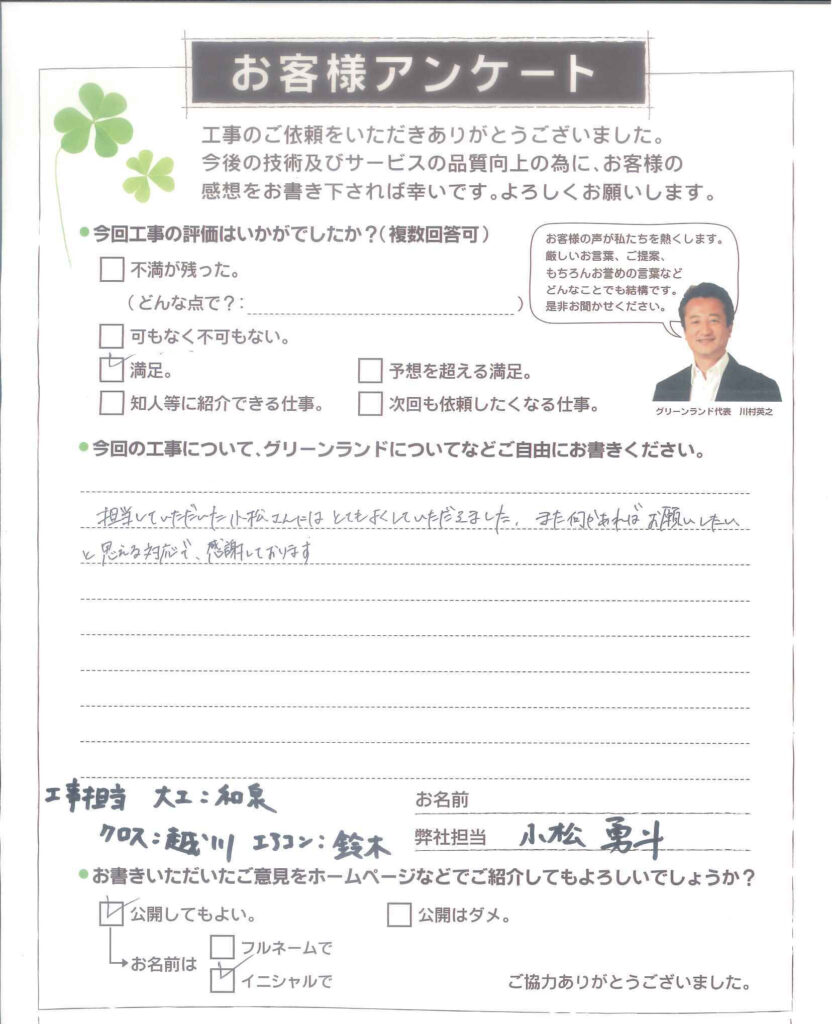 お客様アンケート
工事のご依頼をいただきありがとうございました。
今後の技術及びサービスの品質向上の為に、お客様の
感想をお書き下されば幸いです。よろしくお願いします。
●今回工事の評価はいかがでしたか？（複数回答可）
お客様の声が私たちを熱くします。
厳しいお言葉、ご提案、
もちろんお誉めの言葉など
どんなことでも結構です。
是非お聞かせください。
不満が残った。
（どんな点で？：　　　）
可もなく不可もない。
満足。
予想を超える満足。
知人等に紹介できる仕事。
次回も依頼したくなる仕事。
グリーンランド代表　川村英之
●今回の工事について、グリーンランドについてなどご自由にお書きください。
担当していただいた小松さんにはとてもよくしていただきました。また何かあればお願いしたい
と思える対応で、感謝しております
工事担当　大工：和泉
お名前
クロス：越川　エアコン：鈴木
弊社担当　小松　勇斗
●お書きいただいたご意見をホームページなどでご紹介してもよろしいでしょうか？
公開してもよい。
公開はダメ。
お名前は
フルネームで
イニシャルで
ご協力ありがとうございました。